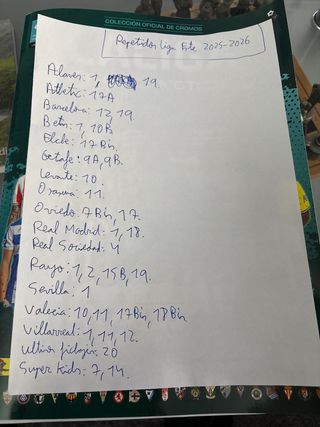 COLECCIÓN OFICIAL DE CROMOS
Repetidos liga Este 2025-2026
Alaves: 1, 19.
Atletic: 17A
Barcelona: 12, 19.
Betis: 1, 10B
Elche: 17 Bis.
Getafe: 9A, 9B.
Levante: 10.
Osasuna: 11.
Oviedo: 7 Bis, 17.
Real Madrid: 1, 18.
Real Sociedad: 4
Rayo: 1, 2, 15B, 19.
Sevilla: 1
Valecia: 10, 11, 17 Bis, 18 Bis
Villarreal: 1, 11, 12.
ultimos fichajes: 20
Super Kids: 7, 14.